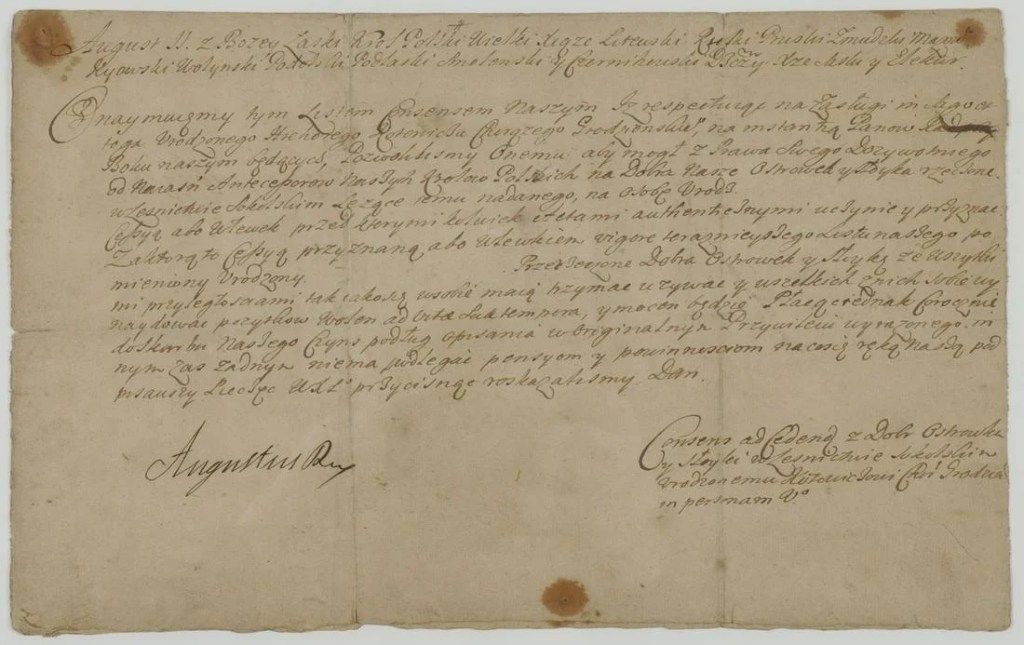 August II. z Bożey Łaski Krol Polski Wielki Xiąże Litewski Ruski Pruski Zmudzki Mazow:
Kyowski Wołynski Podolski Podlaski Smolenski y Czernihowski Xiąze Saski y Elektor.
Oznaymuiemy tym Listem Consensem Naszym Iz respectuiąc na Zasługi
Vrodzonego Chorązego Grodzienskie°, na instantią Panow Rad
Boku naszym będących, Pozwolilismy Onemu aby mogł z Prawa Swego Dozywotniego
od Naiasn: Antecessorow Naszych Krolow Polskich na Dobra Nasze Ostrowek y Słoyka rzeczone
w Lesnictwie Sokolskim Lezące iemu nadanego, na Osobę Vrodz:
Cessyą abo Wlewek przed ktorymi kolwiek Aktami authentycznymi uczynic y przyznac
Za ktorą to Cessyą przyznaną abo Wlewkiem vigore teraznieyszego Listu naszego po
mieniony Vrodzony Przerzeczone Dobra Ostrowek y Słoykę ze wszytki
mi przyległosciami tak iako się w sobie maią trzymac uzywac y wszelkich z nich sobie wy
naydowac pozytkow wolen ad vitæ suæ tempora, y mocen będzie, Płacąc iednak corocznie
do skarbu Naszego Czynsz podług opisania w Originalnym Przywileiu wyrazonego, in
nym zas zadnym niema podlegac pensyom y powinnosciom na co się ręką Naszą pod
pisawszy Pieczęc WXL° przycisnąc roskazalismy. Dan.
Augustus Rex
Consens ad Cedend. z Dobr Ostrowka
y Słoyki w Lesnictwie Sokolskim
Vrodzonemu Chor: Grodzien:
in personam V°